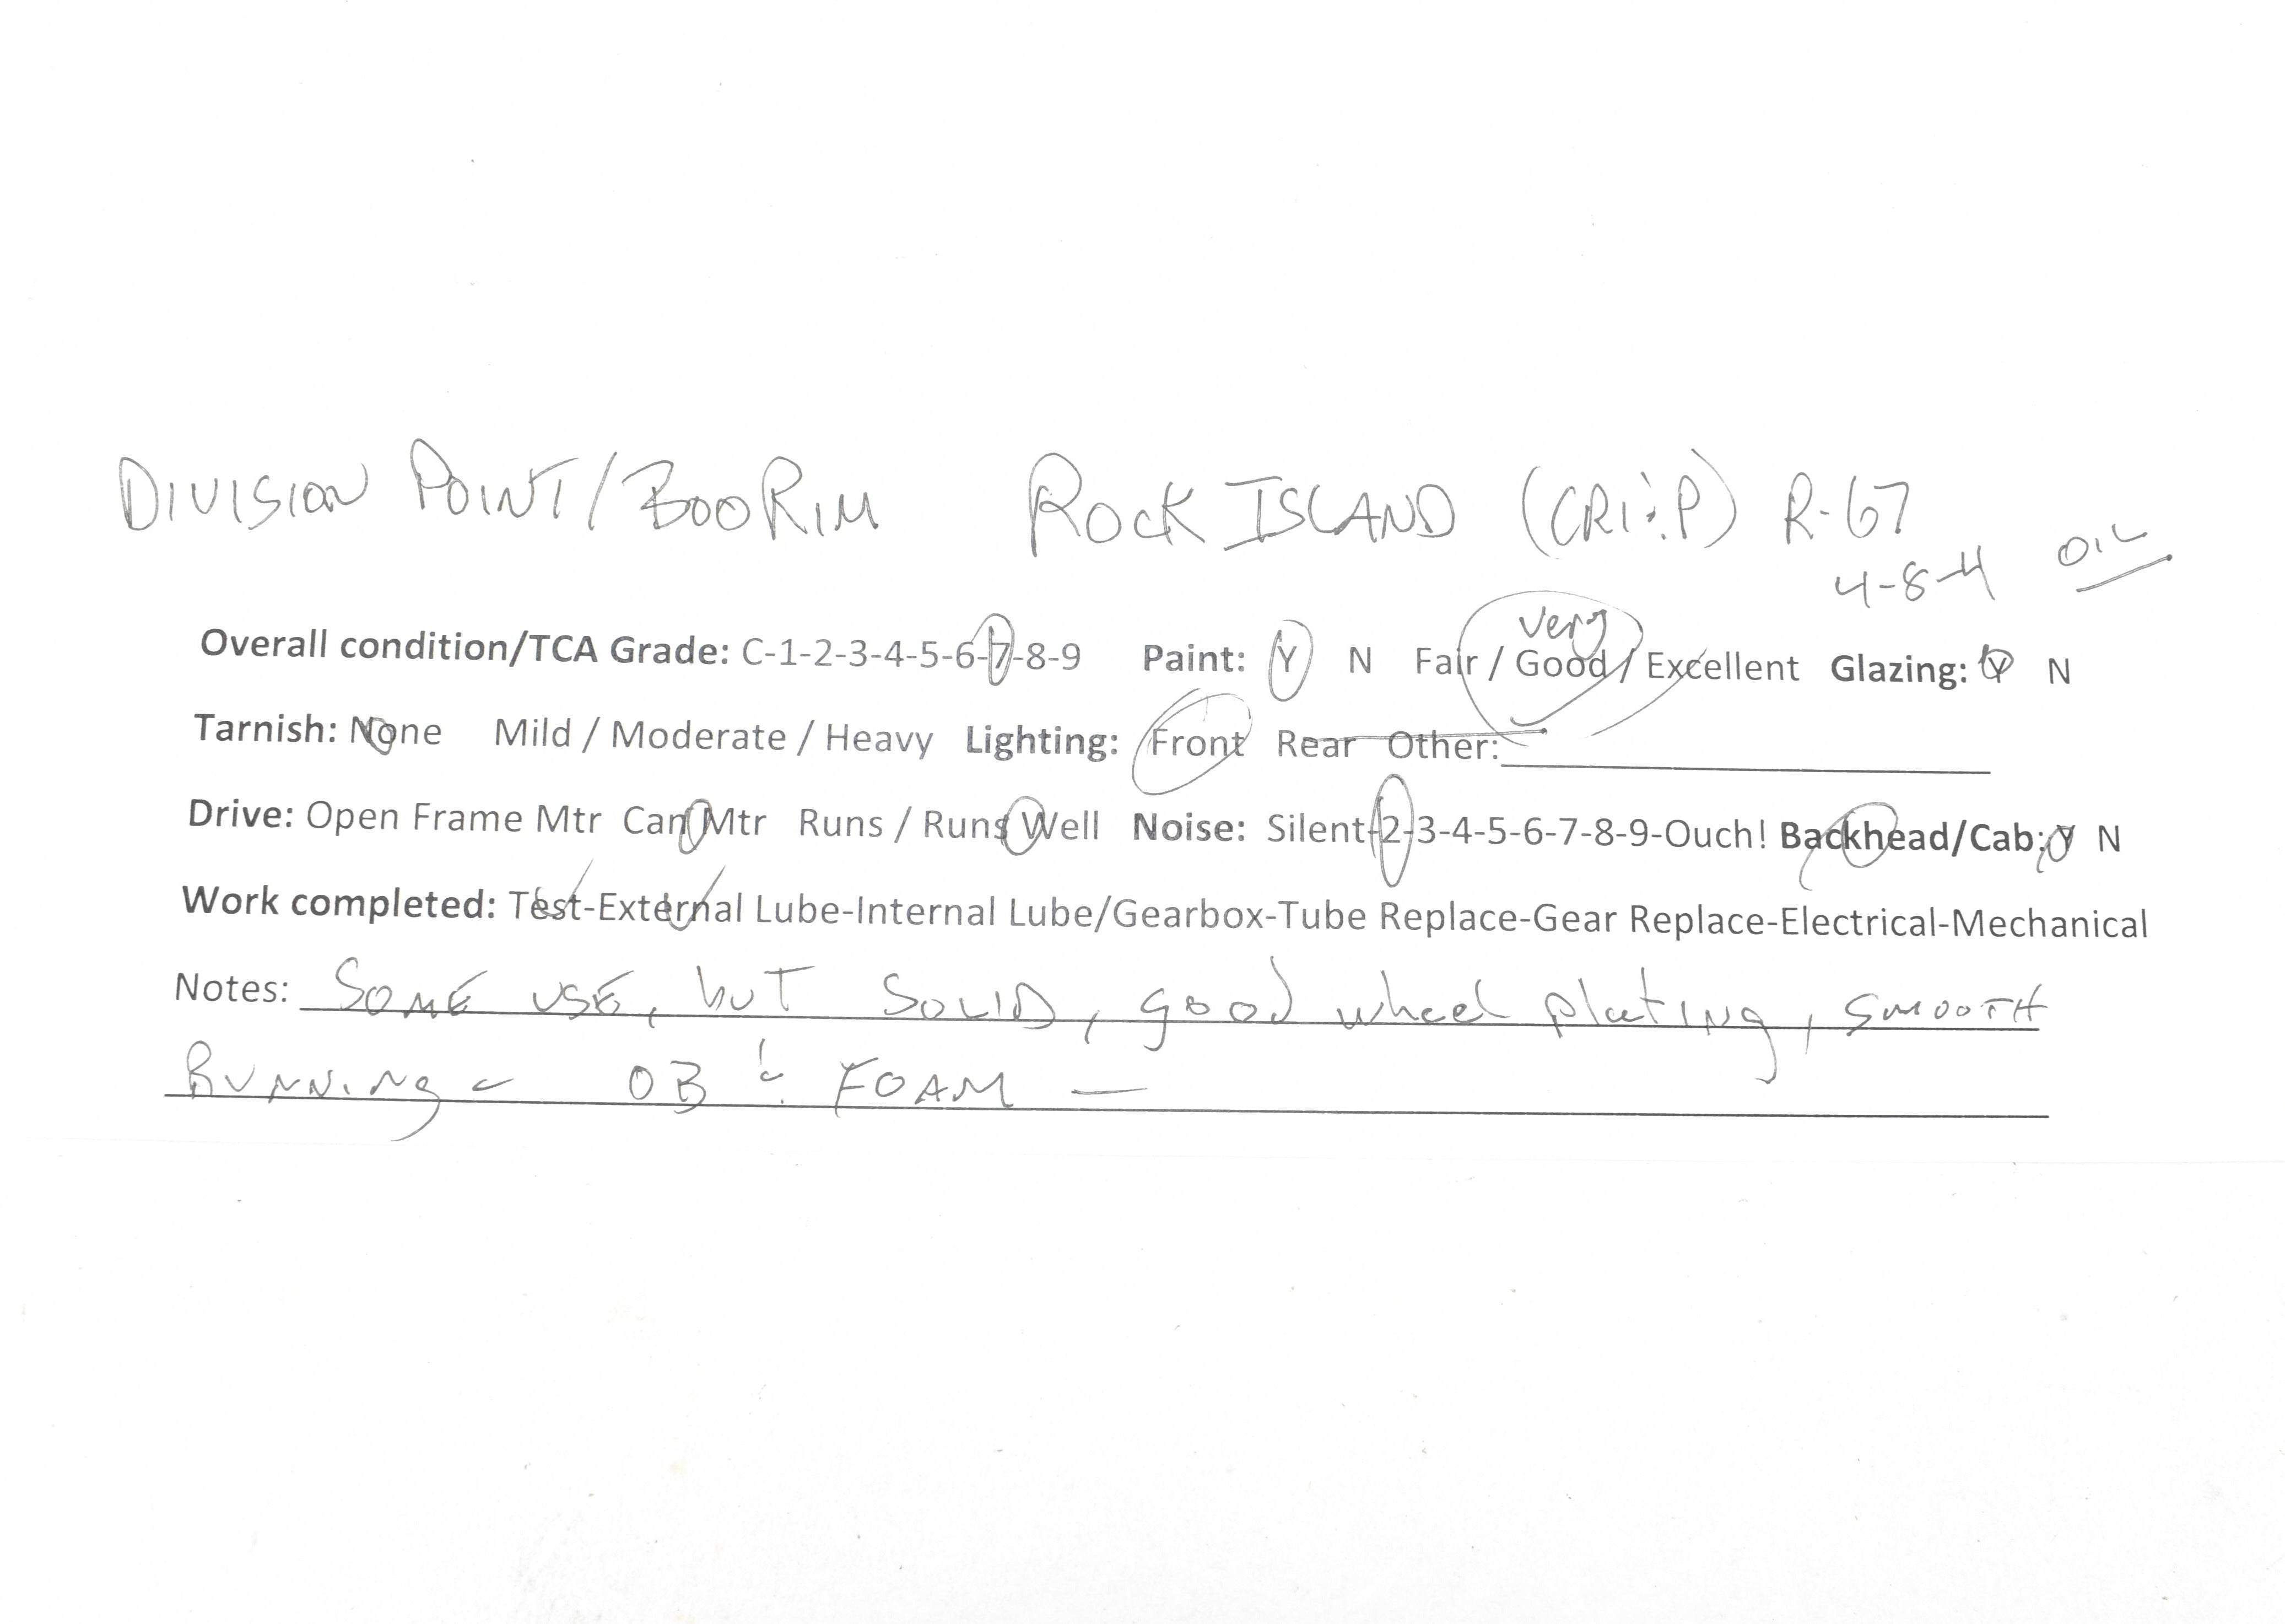 DIVISION POINT/BOO RIM ROCK ISLAND (CRI&P) R-67
4-8-4 OIL
very
Overall condition/TCA Grade: C-1-2-3-4-5-6-7-8-9 Paint: Y N Fair / Good / Excellent Glazing: Y N
Tarnish: None Mild / Moderate / Heavy Lighting: Front Rear Other:
Drive: Open Frame Mtr Can Mtr Runs / Runs Well Noise: Silent-2-3-4-5-6-7-8-9-Ouch! Backhead/Cab: Y N
Work completed: Test-External Lube-Internal Lube/Gearbox-Tube Replace-Gear Replace-Electrical-Mechanical
Notes: SOME USE, but SOLID, good wheel plating, SMOOTH
RUNNING - OB & FOAM —